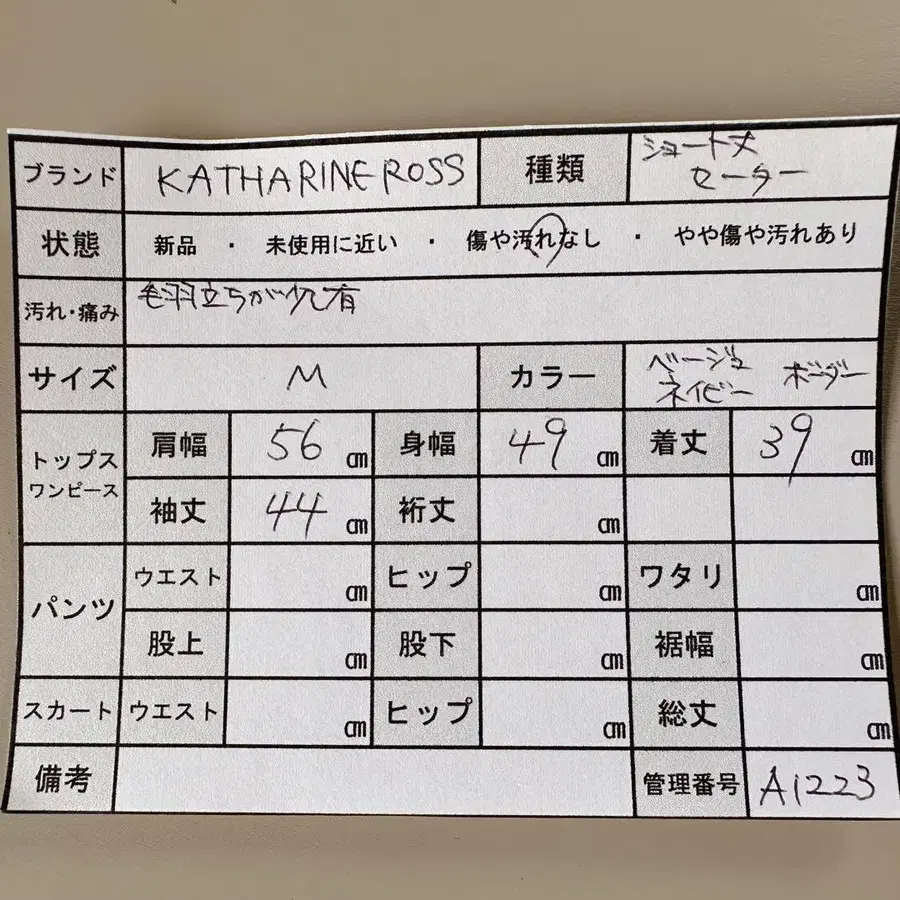 ブランド KATHARINE ROSS 種類 ショート丈
セーター
状態 新品 ・ 未使用に近い ・ 傷や汚れなし ・ やや傷や汚れあり
汚れ・痛み 毛羽立ちが少し有
サイズ M カラー ベージュ
ネイビー ボーダー
トップス
ワンピース
肩幅 56 cm 身幅 49 cm 着丈 39 cm
袖丈 44 cm 裄丈 cm
パンツ
ウエスト cm ヒップ cm ワタリ cm
股上 cm 股下 cm 裾幅 cm
スカート ウエスト cm ヒップ cm 総丈 cm
備考 管理番号 A1223